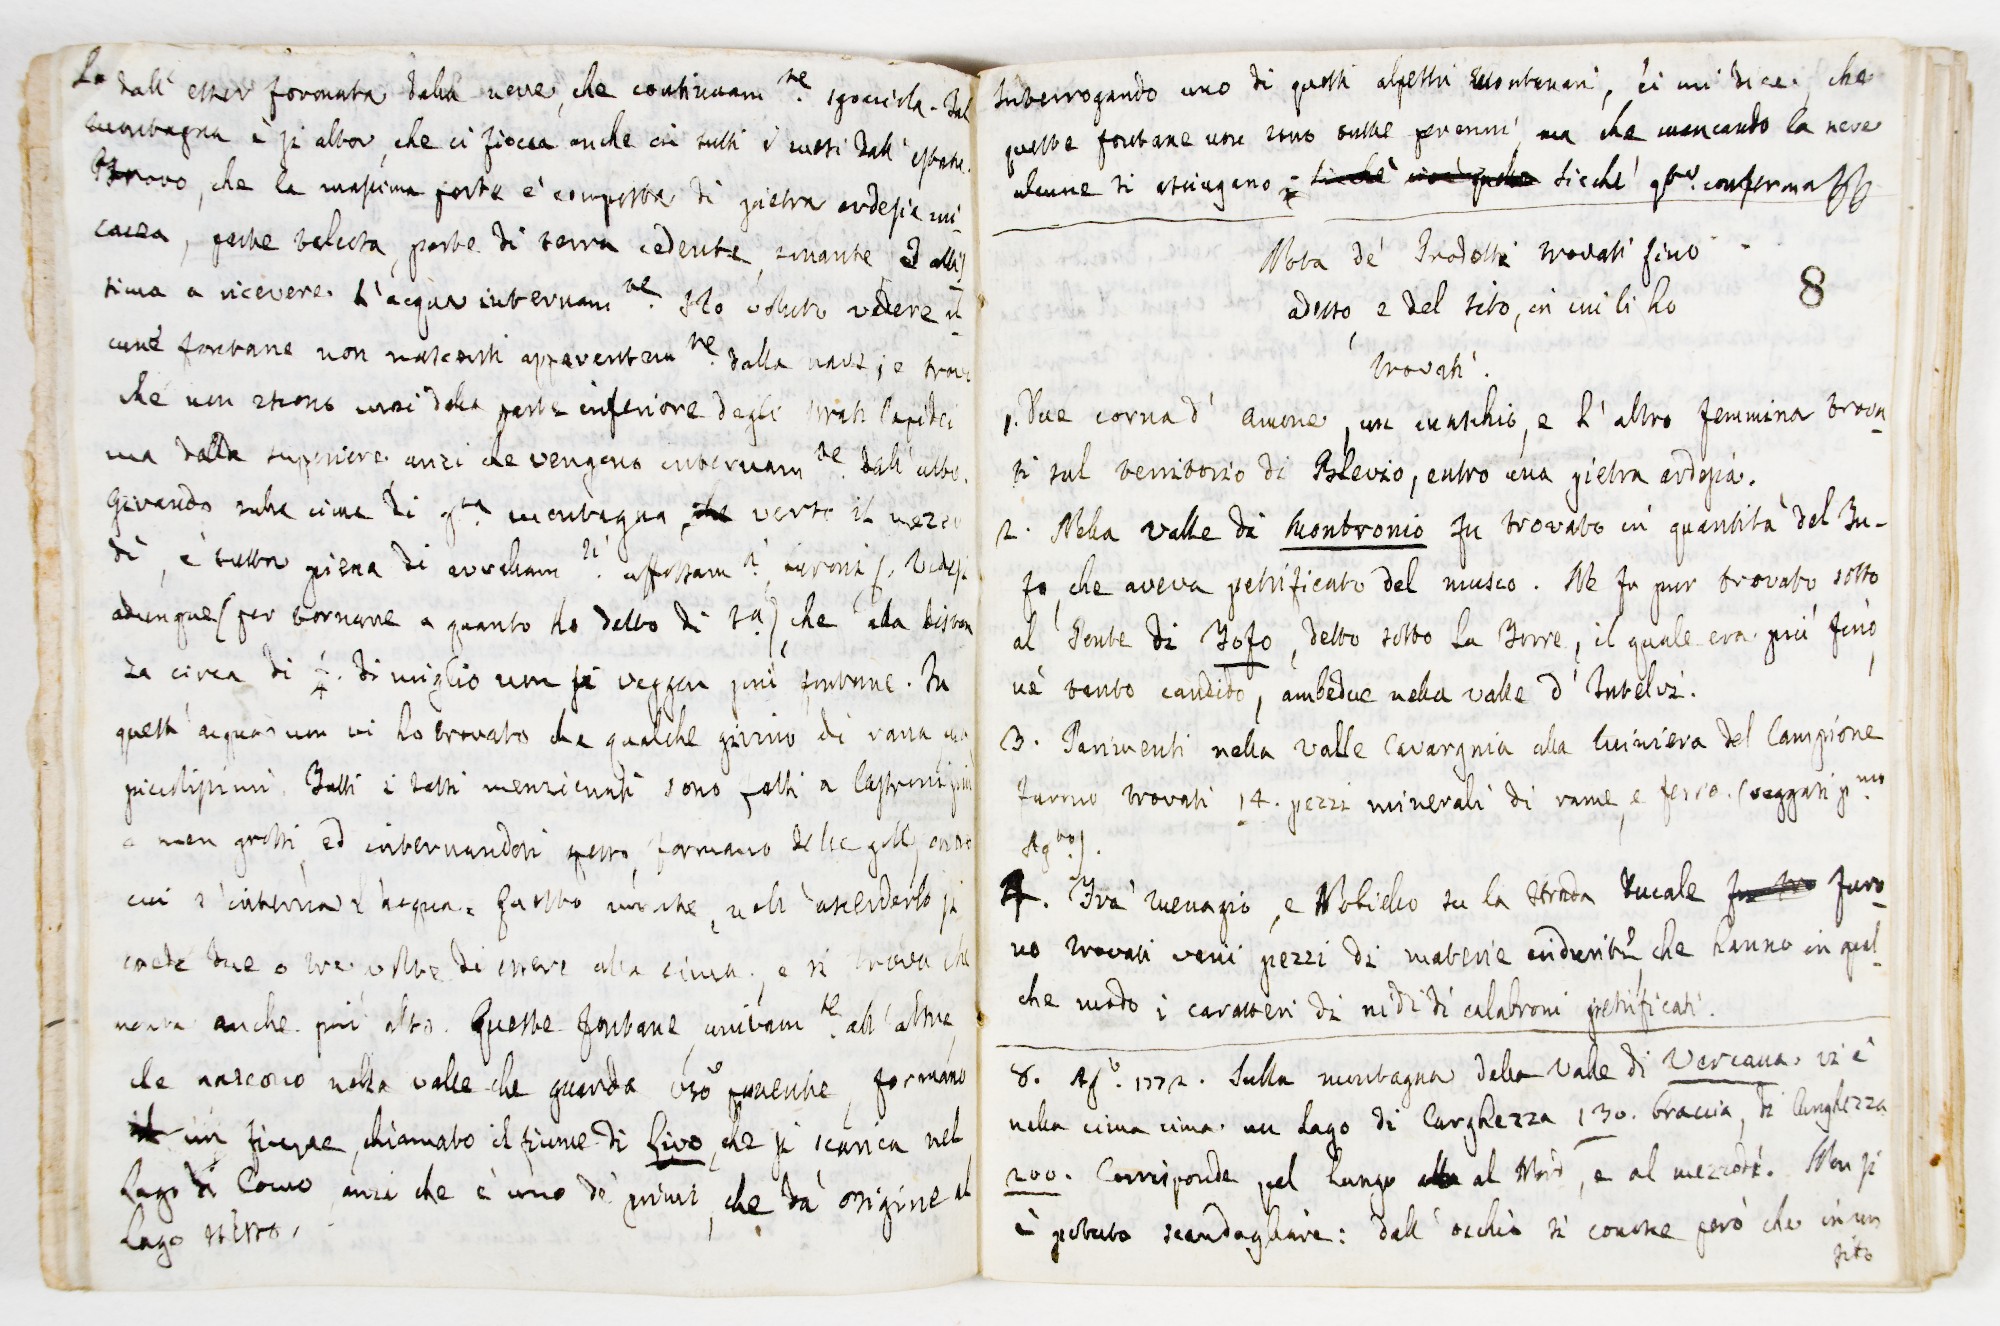 La dall' esser formata dalla neve, che continuam.te sgocciola. Tal
montagna è sì alta, che ci fiocca anche in tutti i mesi dall' estate.
Trovo, che la massima parte è composta di pietra ardesia mi-
cacea, parte calcosa, parte di terra cedente,
tima a ricevere l'acqua internam.te. Ho voluto vedere al-
cune fontane non nascenti apparentem.te dalla neve; e trovo
che non escono anzi dalla parte inferiore degli strati lapidei
ma dalla superiore, anzi che vengono internam.te dall' alto.
Girando sulla cima di q.ta montagna, verso il mezzo
dì, è tutta piena di
adunque (per tornare a quanto ho detto di s.a), che alla distan
za circa di 1/4. di miglio non si veggon più fontane. In
quest' acqua non vi ho trovato che qualche girino di rana
piccolissimi. Tutti i sassi menzionati sono fatti a lastroni più
o men grossi, ed internandosi forman delle
cui s'interna l'acqua. Questo monte, nell' ascenderlo si
crede due o tre volte di essere alla cima, e si trova che
monta anche più alto. Queste fontane, unitam.te all' altre,
che nascono nella valle che guarda verso ponente, formano
un fiume, chiamato il fiume di Livo, che si scarica nel
Lago di Como, anzi che è uno de' primi, che dà origine al
Lago stesso.
Interrogando uno di questi alpestri Montanari, ei mi dice, che
queste fontane non sono tutte perenni, ma che mancando la neve
alcune si asciugano: sicchè q.to conferma
Nota de' Prodotti trovati fino
adesso, e del sito, in cui li ho
trovati.
8
1. Due corna d' Amone, un maschio, e l' altro femmina trova-
ti sul territorio di Blevio, entro una pietra ardesia.
2. Nella valle di Montronio fu trovato in quantità del Tu-
fo, che aveva petrificato del musco. Ne fu pur trovato sotto
al Ponte di Tofo, detto sotto la Torre, il quale era più fino,
nè tanto candido, ambedue nella valle d' Intelvi.
3. Parimenti nella valle Cavargnia alla Miniera del Campione
furono trovati 14. pezzi minerali di rame, e ferro. (veggasi p.mo
Ag.to).
4. Trà Menagio, e Nobiallo su la strada Ducale furo-
no trovati varii pezzi di materie indurite, che hanno in qual-
che modo i caratteri di nidi di calabroni petrificati.
8. Ag.o 1772. Sulla montagna della Valle di Vercana vi è
nella cima cima un Lago di Larghezza 130. braccia, di lunghezza
200. Corrisponde pel lungo al Nord, e al mezzodì. Non si
è potuto scandagliare: dall' occhio si conosce però che in un
sito